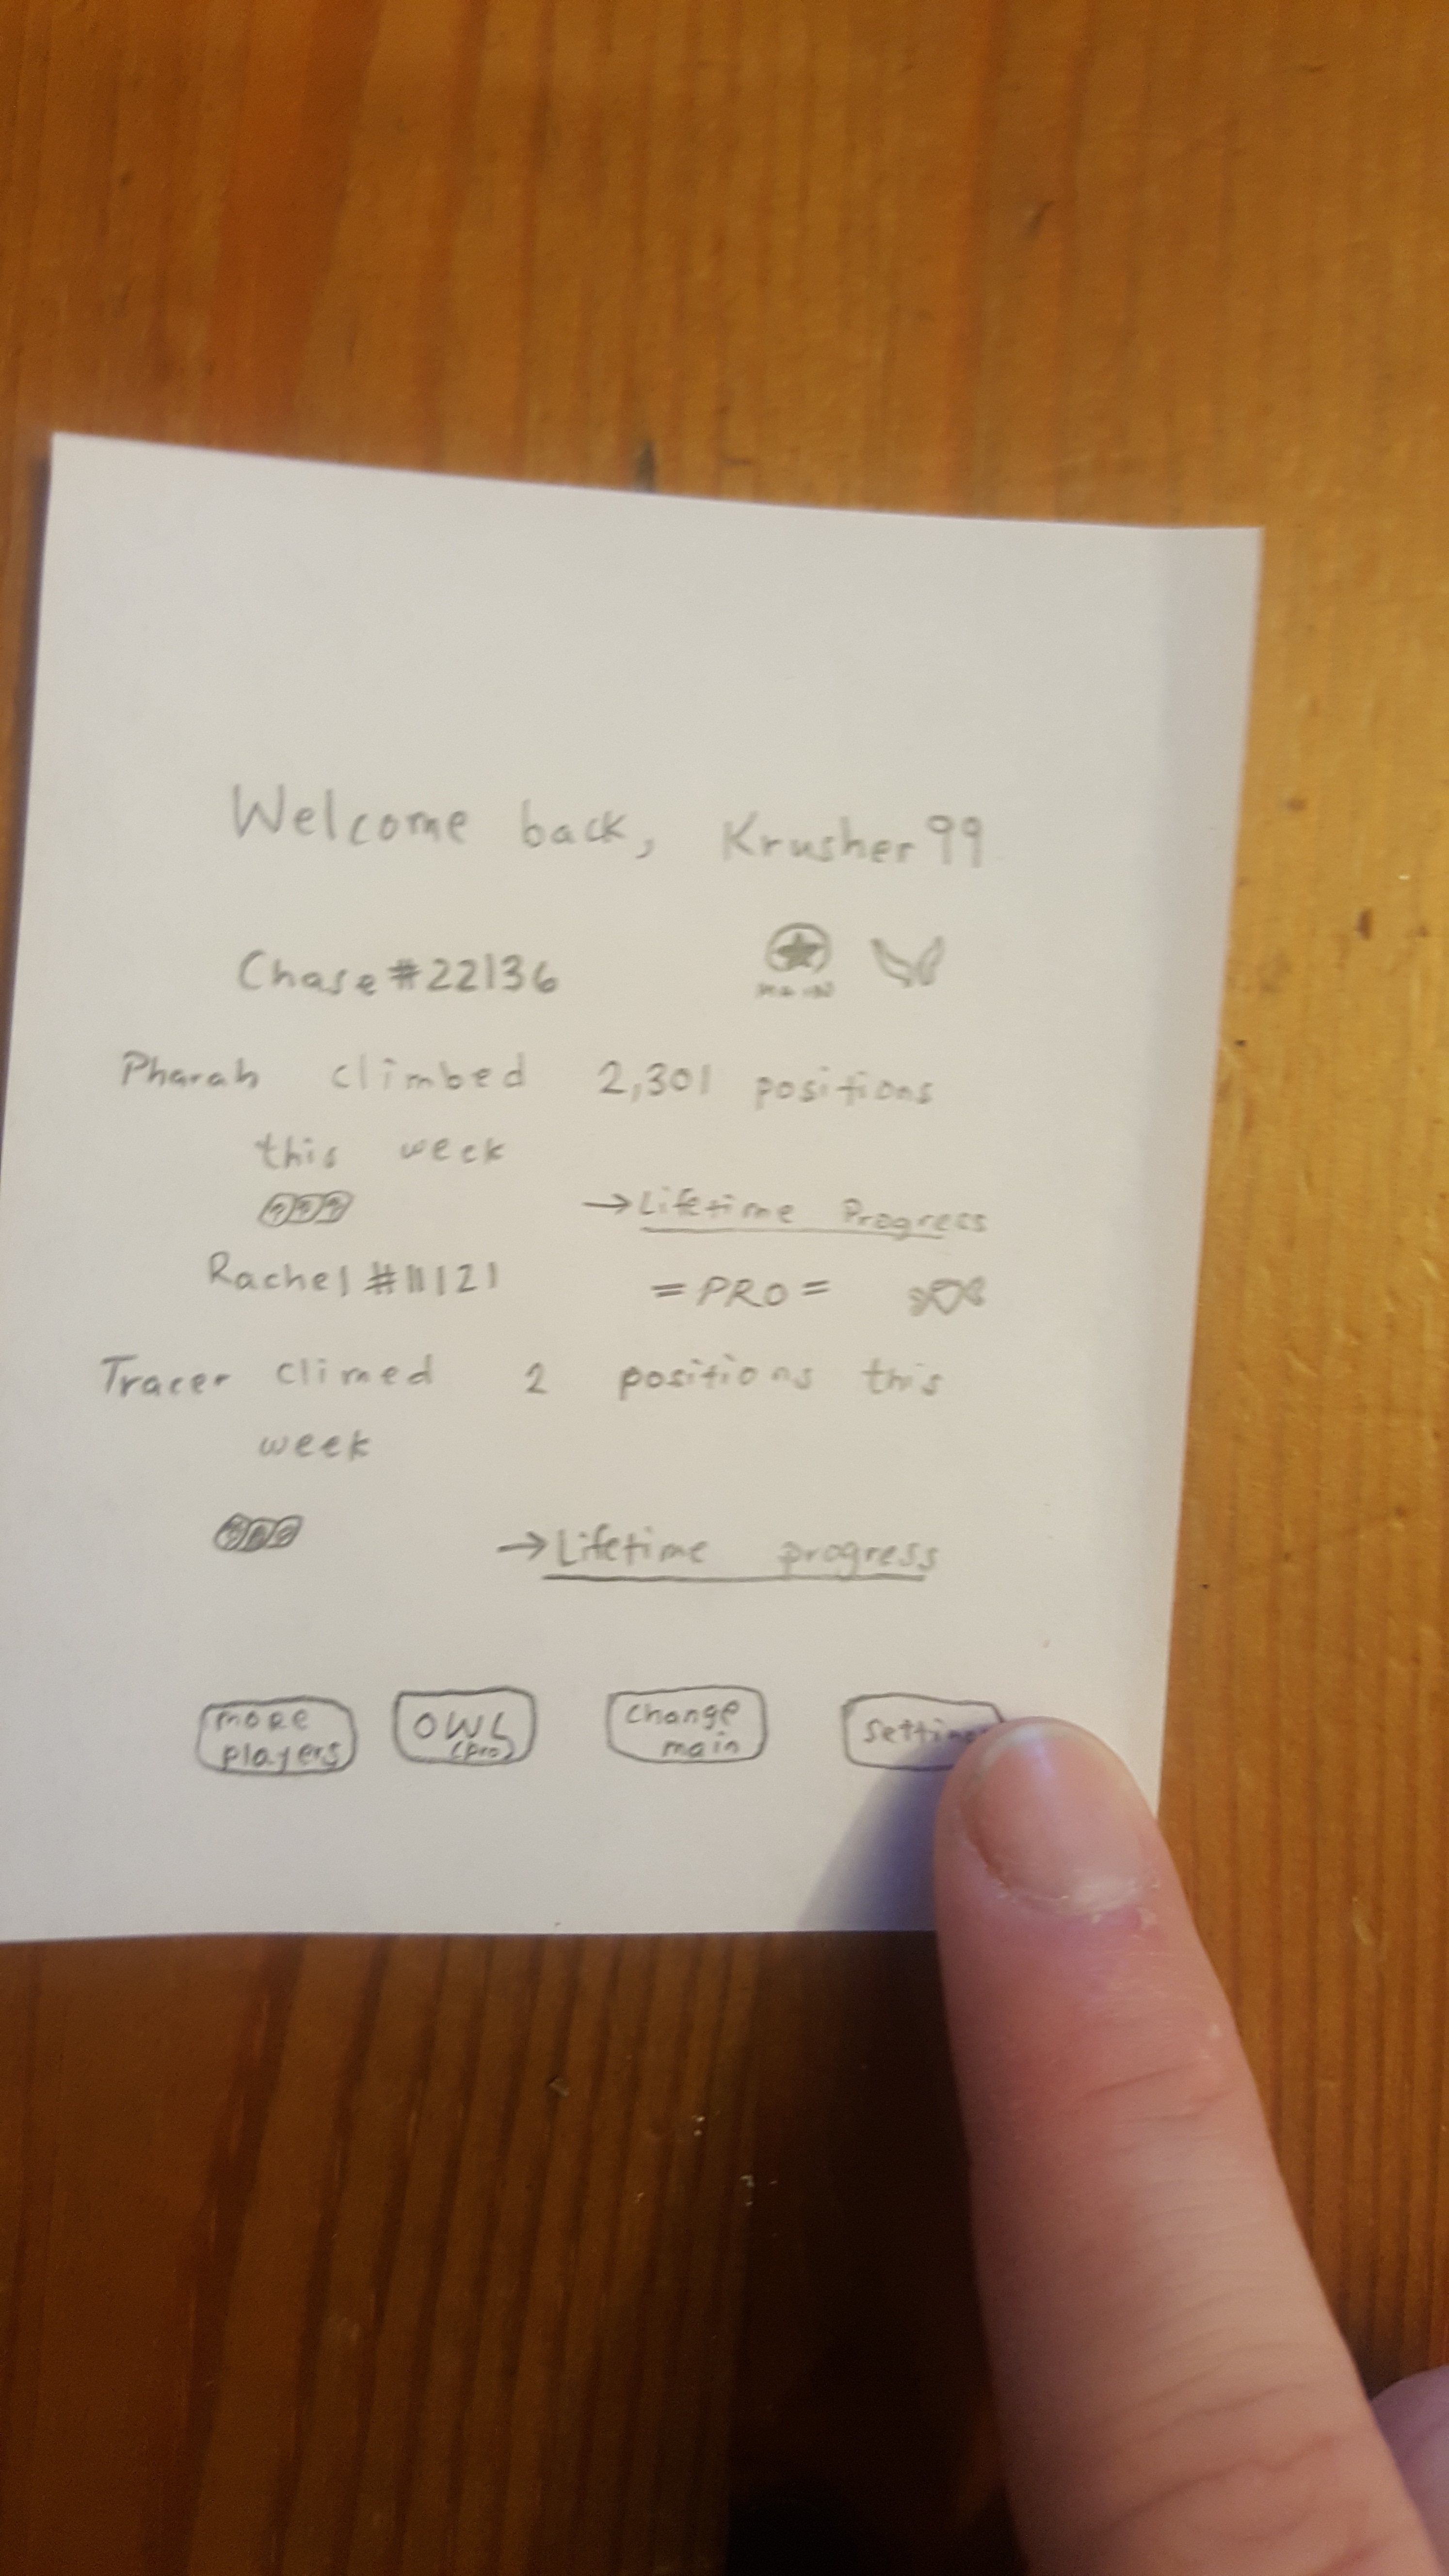 Welcome back, Krusher99
Chase#22136
MAIN
Pharah climbed 2,301 positions
this week
→Lifetime Progress
Rachel#11121 =PRO=
Tracer climed 2 positions this
week
→Lifetime progress
more
players
OWL
(pro)
change
main